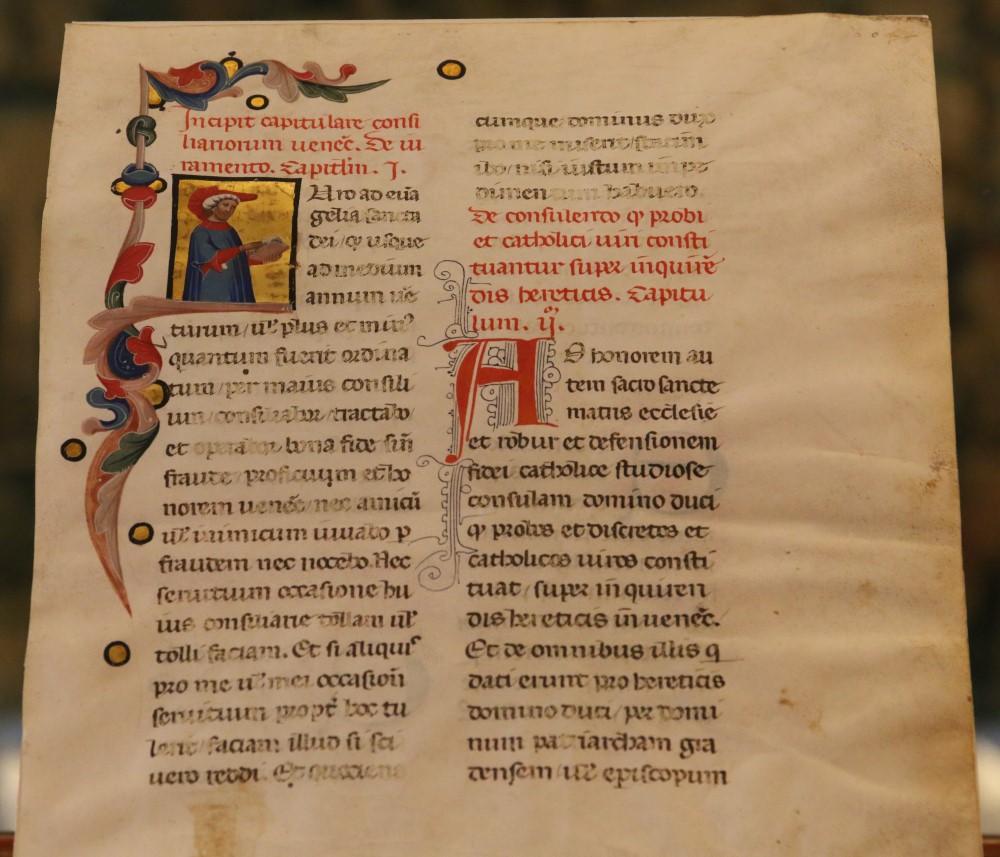 Incipit capitulare consi
liariorum uenec̄. De iu
ramento. Capitl̄m. I.
Uro ad euā
gelia sancta
dei/ꝙ usque
ad medium
annum ue
turum/ul̄ plus et min᾿
quantum fuerit ordina
tum/per maius consili
um/consiliabor/tractabo/
et operabor bona fide sin̄
fraude/proficuum et ho
norem uenec̄/nec amicū
ul̄ inimicum iuuabo p
fraudem nec nocebo. Nec
seruitium occasione hu
ius consiliarie tollam ul̄
tolli faciam. Et si aliquis
pro me ul̄ mei occasion̄
seruitium propt̄ hoc tu
lerit/faciam illud si sci
uero reddi. Et quociens
cumque dominus dux
pro me miserit/statim
ibo/nisi iustum
dimentum habuero.
De consulendo ꝙ probi
et catholici uiri consti
tuantur super inquirē
dis hereticis. Capitu
lum. ij.
AD honorem au
tem sacrosancte
matris ecclesie
et robur et defensionem
fidei catholice studiose
consulam domino duci
ꝙ probos et discretos et
catholicos uiros consti
tuat/super inquiren
dis hereticis in uenec̄.
Et de omnibus illis q
dati erunt pro hereticis
domino duci/per domi
num patriarcham gra
densem/ul̄ episcopum